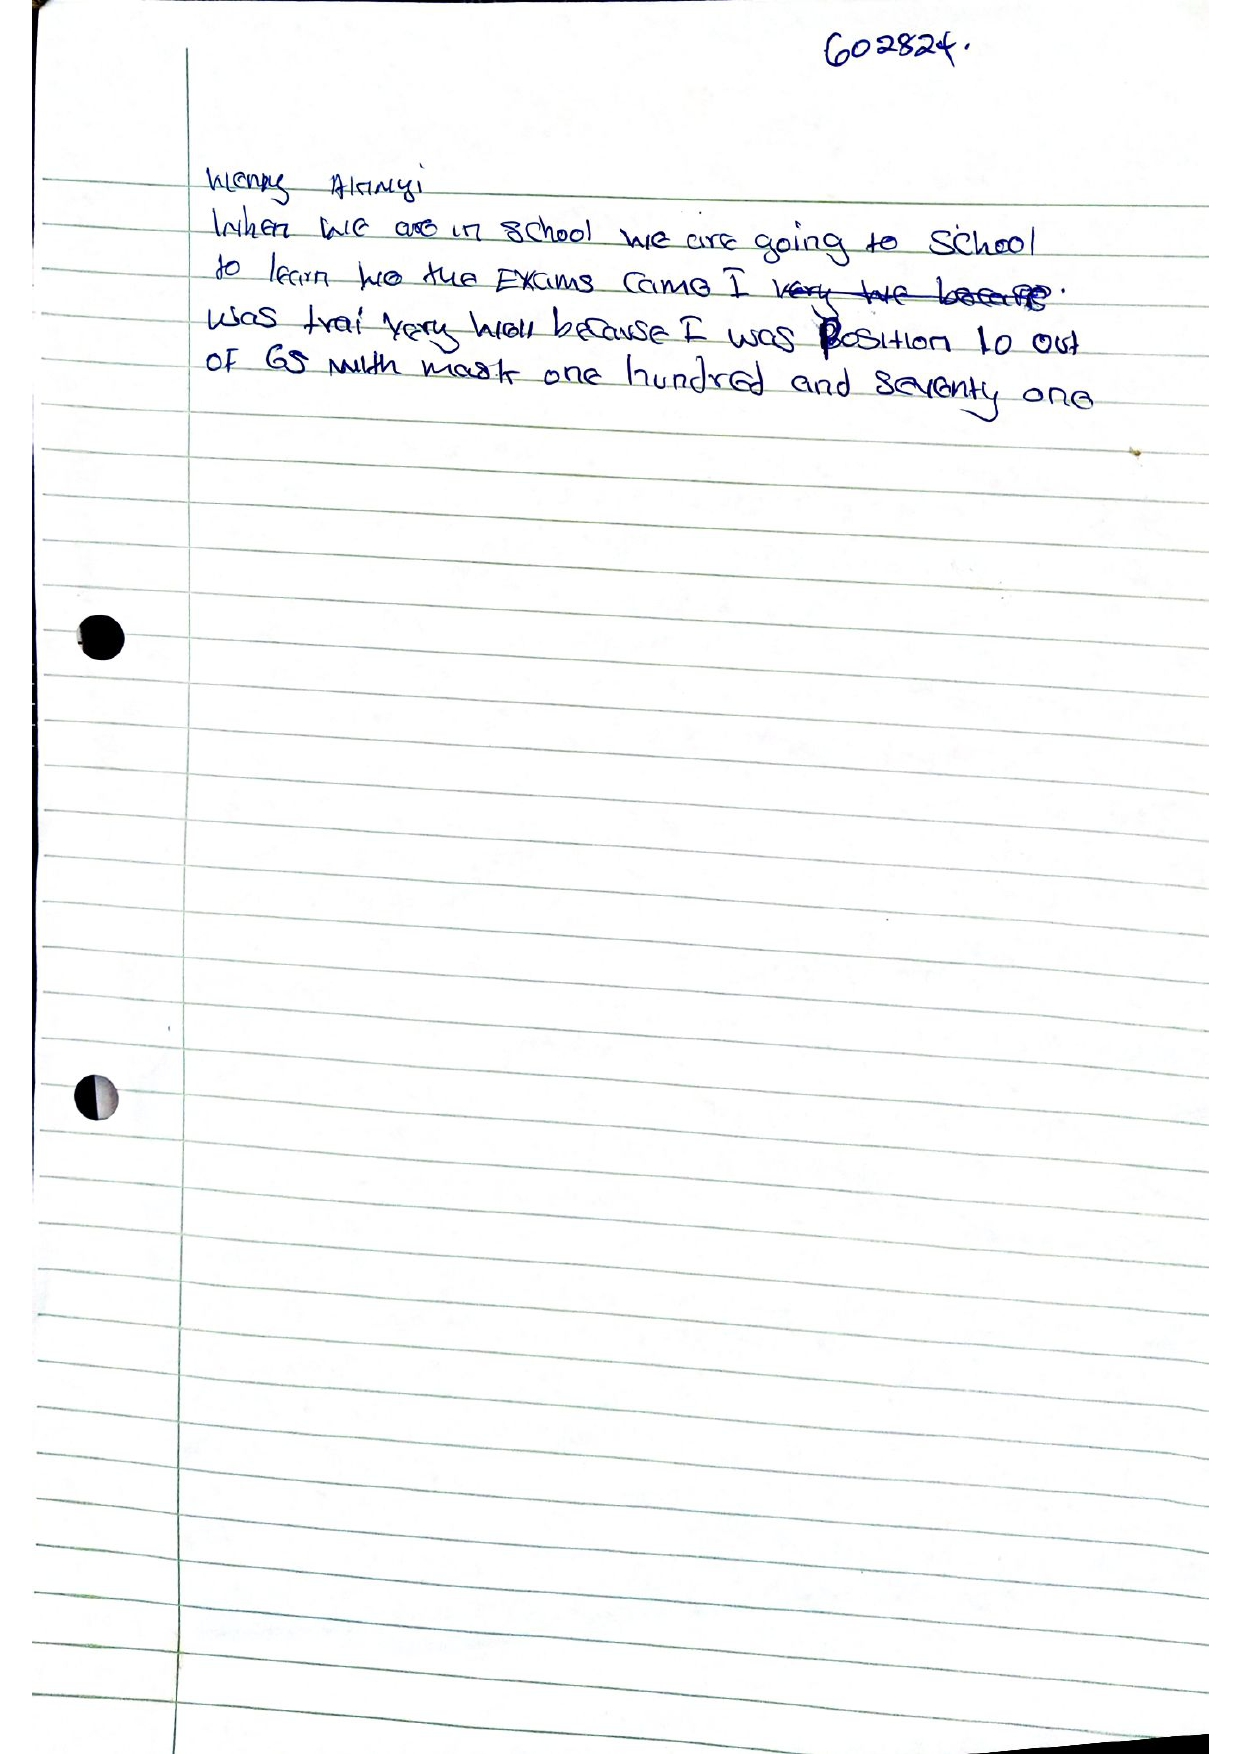 602824.
Wendy Akinyi
When we are in school we are going to school
to learn we the Exams came I very we because.
was trai very well because I was Position 10 out
of 65 with mask one hundred and seventy one